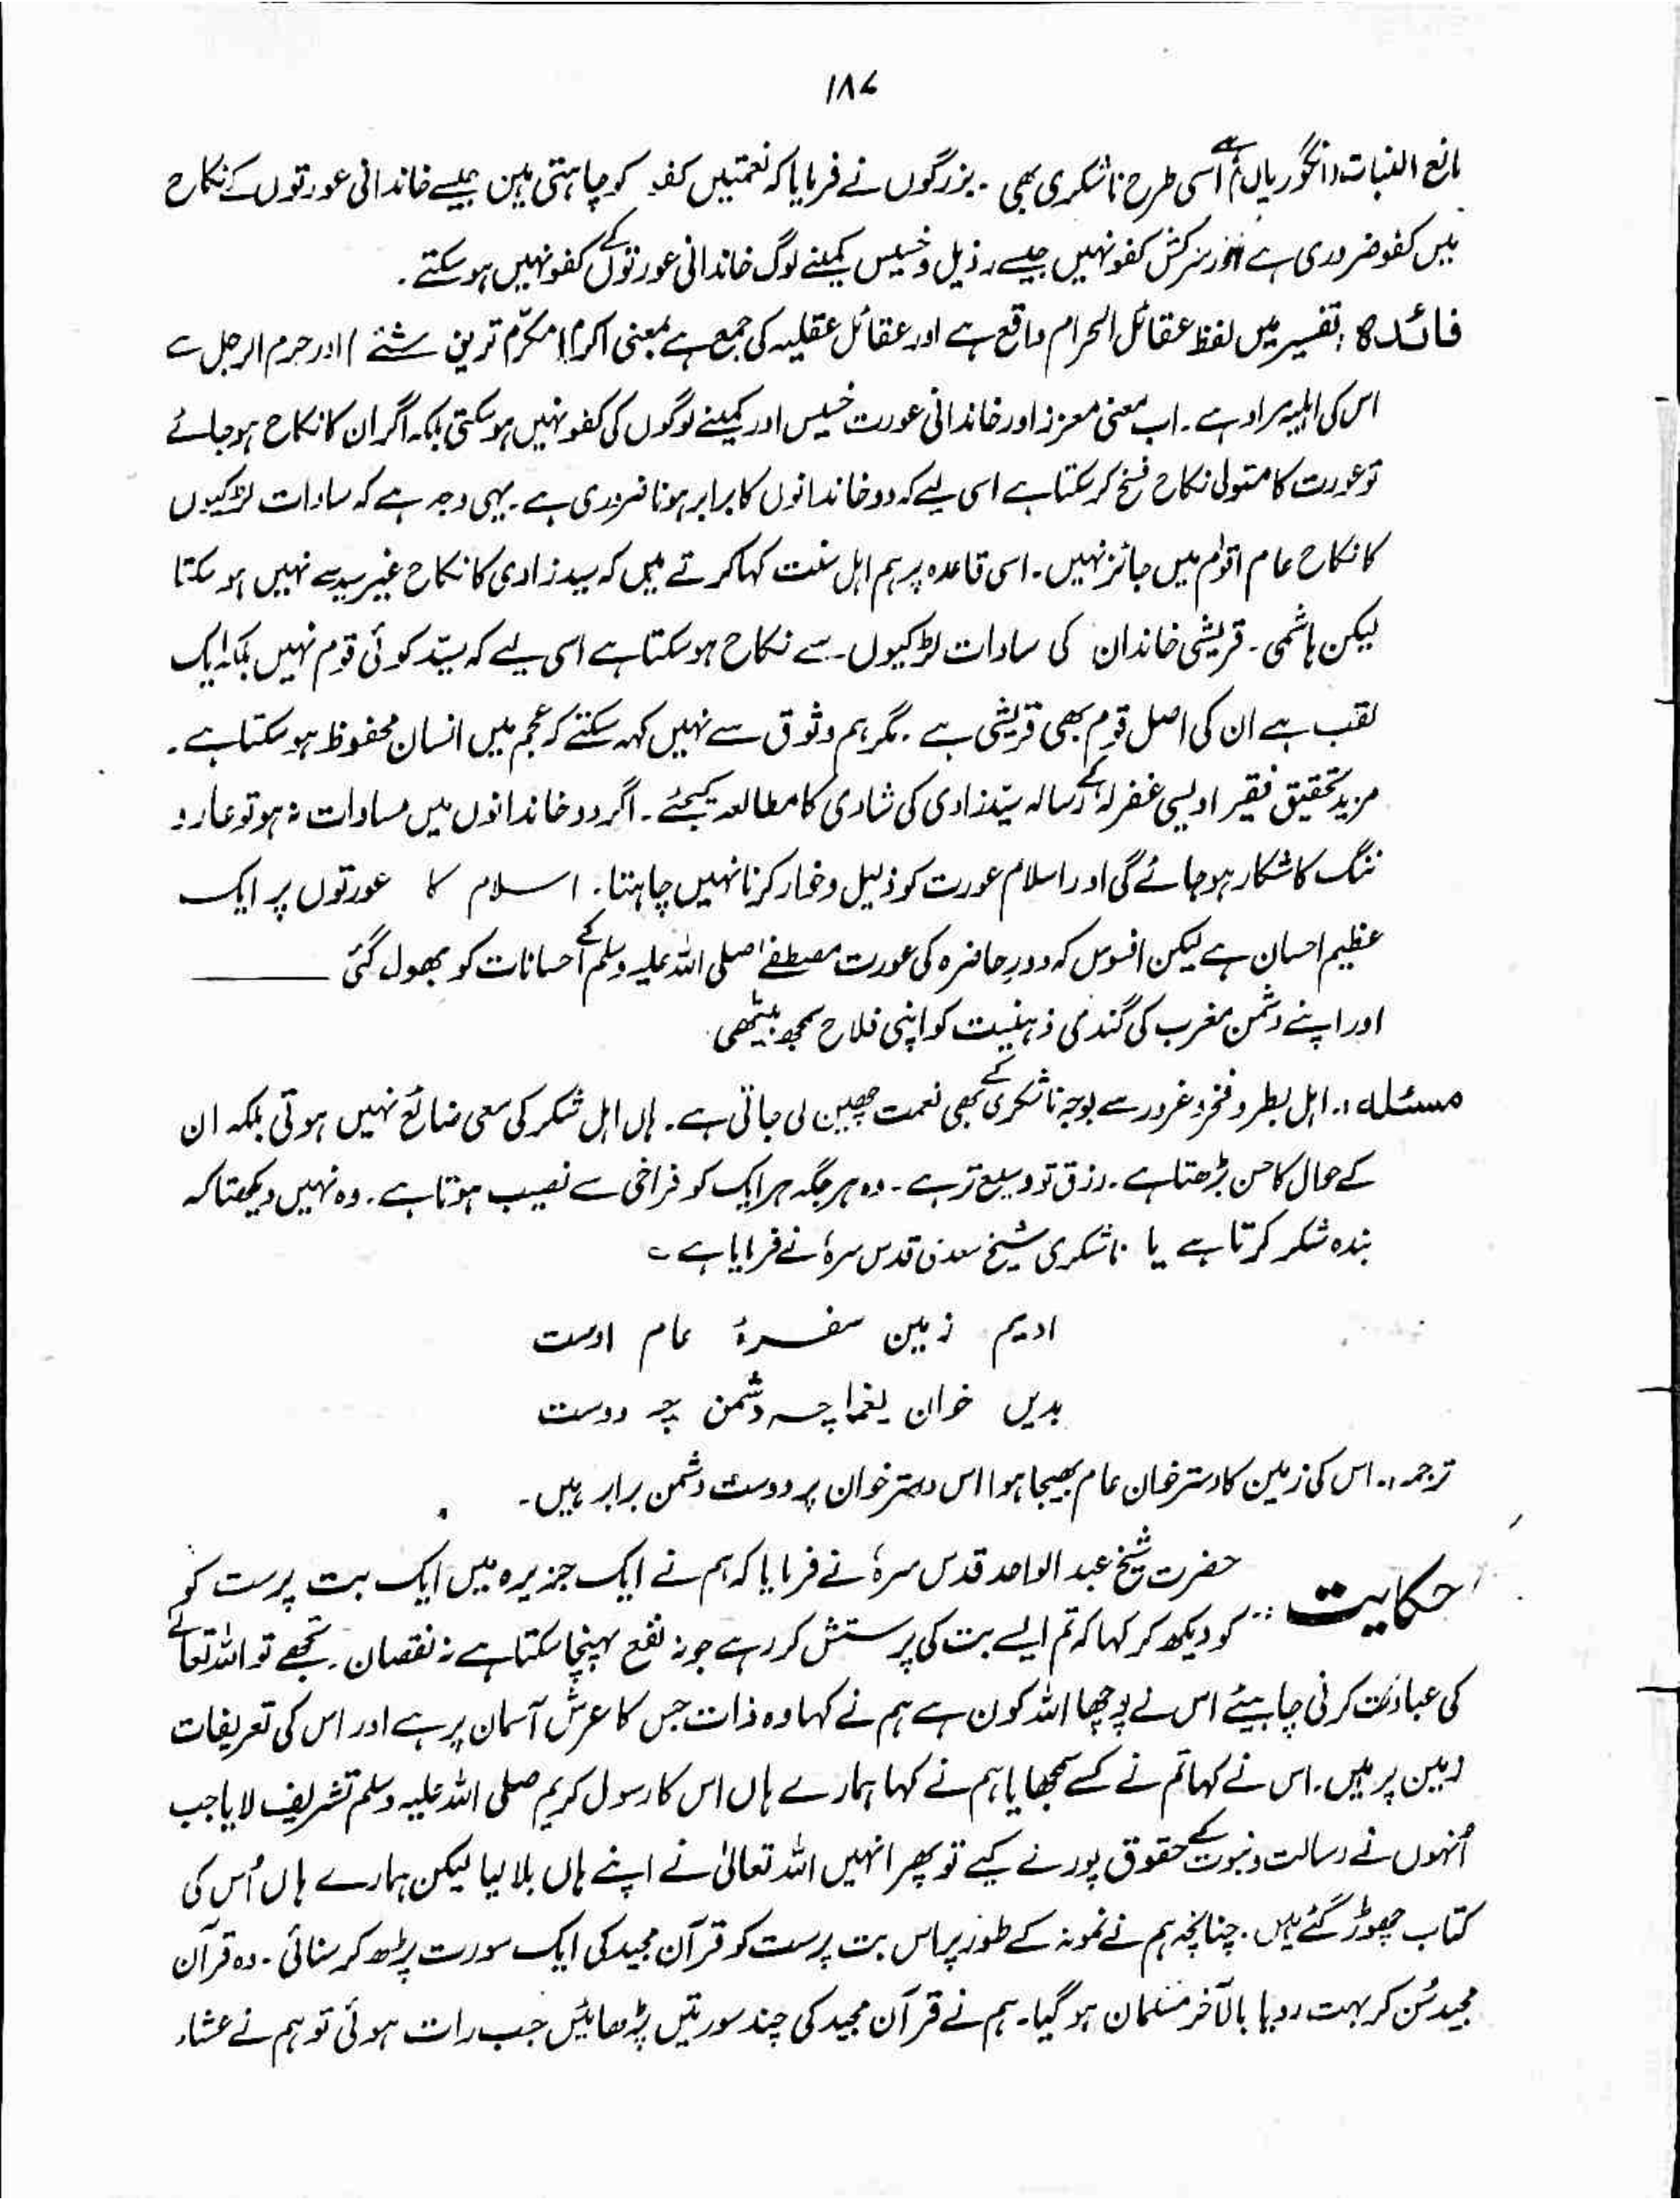 ۱۸۷
مانع النبات (انگوریاں) ہے اسی طرح ناشکری بھی ۔ بزرگوں نے فرمایا کہ نعمتیں کفو کو چاہتی ہیں جیسے خاندانی عورتوں کے نکاح
میں کفو ضروری ہے اور سرکش کفو نہیں جیسے رذیل و خسیس کمینے لوگ خاندانی عورتوں کے کفو نہیں ہو سکتے ۔
فائدہ : تفسیر میں لفظ عقائل الحرام واقع ہے اور عقائل عقلیہ کی جمع ہے بمعنی اکرم (مکرّم ترین شئے) اور حرم الرجل سے
اس کی اہلیہ مراد ہے ۔ اب معنی معزز اور خاندانی عورت خسیس اور کمینے لوگوں کی کفو نہیں ہو سکتی بلکہ اگر ان کا نکاح ہو جائے
تو عورت کا متولی نکاح فسخ کر سکتا ہے اسی لیے کہ دو خاندانوں کا برابر ہونا ضروری ہے ۔ یہی وجہ ہے کہ سادات لڑکیوں
کا نکاح عام اقوام میں جائز نہیں ۔ اسی قاعدہ پر ہم اہل سنت کہا کرتے ہیں کہ سید زادی کا نکاح غیر سید سے نہیں ہو سکتا
لیکن ہاشمی ۔ قریشی خاندان کی سادات لڑکیوں ۔ سے نکاح ہو سکتا ہے اسی لیے کہ سیّد کوئی قوم نہیں بلکہ ایک
لقب ہے ان کی اصل قوم بھی قریشی ہے ۔ مگر ہم وثوق سے نہیں کہہ سکتے کہ عجم میں انسان محفوظ ہو سکتا ہے ۔
مزید تحقیق فقیر اویسی غفرلہ کے رسالہ سیّد زادی کی شادی کا مطالعہ کیجئے ۔ اگر دو خاندانوں میں مساوات نہ ہو تو عار و
ننگ کا شکار ہو جائے گی اور اسلام عورت کو ذلیل و خوار کرنا نہیں چاہتا ۔ اسلام کا عورتوں پر ایک
عظیم احسان ہے لیکن افسوس کہ دورِ حاضرہ کی عورت مصطفےٰ صلی اللہ علیہ وسلم کے احسانات کو بھول گئی ــــــــ
اور اپنے دشمن مغرب کی گندی ذہنیت کو اپنی فلاح سمجھ بیٹھی ۔
مسئلہ :۔ اہل بطر و فخر و غرور سے بوجہ ناشکری کے بھی نعمت چھین لی جاتی ہے ۔ ہاں اہل شکر کی سعی ضائع نہیں ہوتی بلکہ ان
کے حال کا حسن بڑھتا ہے ۔ رزق تو وسیع تر ہے ۔ وہ ہر جگہ ہر ایک کو فراخی سے نصیب ہوتا ہے ۔ وہ نہیں دیکھتا کہ
بندہ شکر کرتا ہے یا ناشکری شیخ سعدی قدس سرہٗ نے فرمایا ہے ؎
ادیم زمین سفرۂ عام اوست
بدیں خوان یغما چہ دشمن چہ دوست
ترجمہ :۔ اس کی زمین کا دسترخوان عام بھیجا ہوا اس دسترخوان پر دوست دشمن برابر ہیں ۔
حکایت :۔ حضرت شیخ عبد الواحد قدس سرہٗ نے فرمایا کہ ہم نے ایک جزیرہ میں ایک بت پرست کو
کو دیکھ کر کہا کہ تم ایسے بت کی پرستش کر رہے جو نہ نفع پہنچا سکتا ہے نہ نقصان ۔ تجھے تو اللہ تعالےٰ
کی عبادت کرنی چاہیئے اس نے پوچھا اللہ کون ہے ہم نے کہا وہ ذات جس کا عرش آسمان پر ہے اور اس کی تعریفات
زمین پر ہیں ۔ اس نے کہا تم نے کسے سمجھایا ہم نے کہا ہمارے ہاں اس کا رسول کریم صلی اللہ علیہ وسلم تشریف لایا جب
اُنہوں نے رسالت و نبوت کے حقوق پورے کیے تو پھر انہیں اللہ تعالیٰ نے اپنے ہاں بلا لیا لیکن ہمارے ہاں اُس کی
کتاب چھوڑ گئے ہیں ۔ چنانچہ ہم نے نمونہ کے طور پر اس بت پرست کو قرآن مجید کی ایک سورت پڑھ کر سنائی ۔ وہ قرآن
مجید سُن کر بہت رویا بالآخر مسلمان ہو گیا ۔ ہم نے قرآن مجید کی چند سورتیں پڑھائیں جب رات ہوئی تو ہم نے عشاء